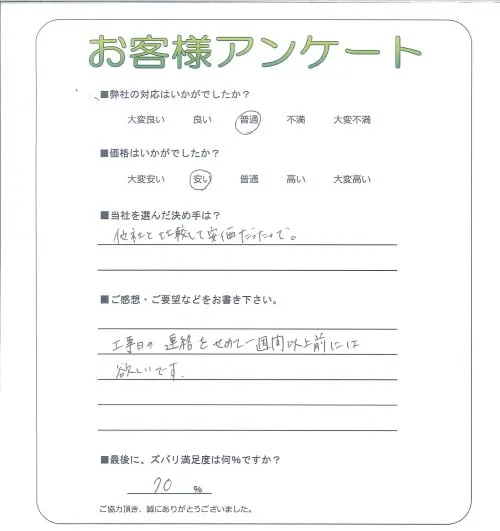 お客様アンケート
■弊社の対応はいかがでしたか？
大変良い 良い 普通 不満 大変不満
■価格はいかがでしたか？
大変安い 安い 普通 高い 大変高い
■当社を選んだ決め手は？
他社と比較して安価だったので。
■ご感想・ご要望などをお書き下さい。
工事日の連絡をせめて一週間以上前には
欲しいです。
■最後に、ズバリ満足度は何%ですか？
70 %
ご協力頂き、誠にありがとうございました。